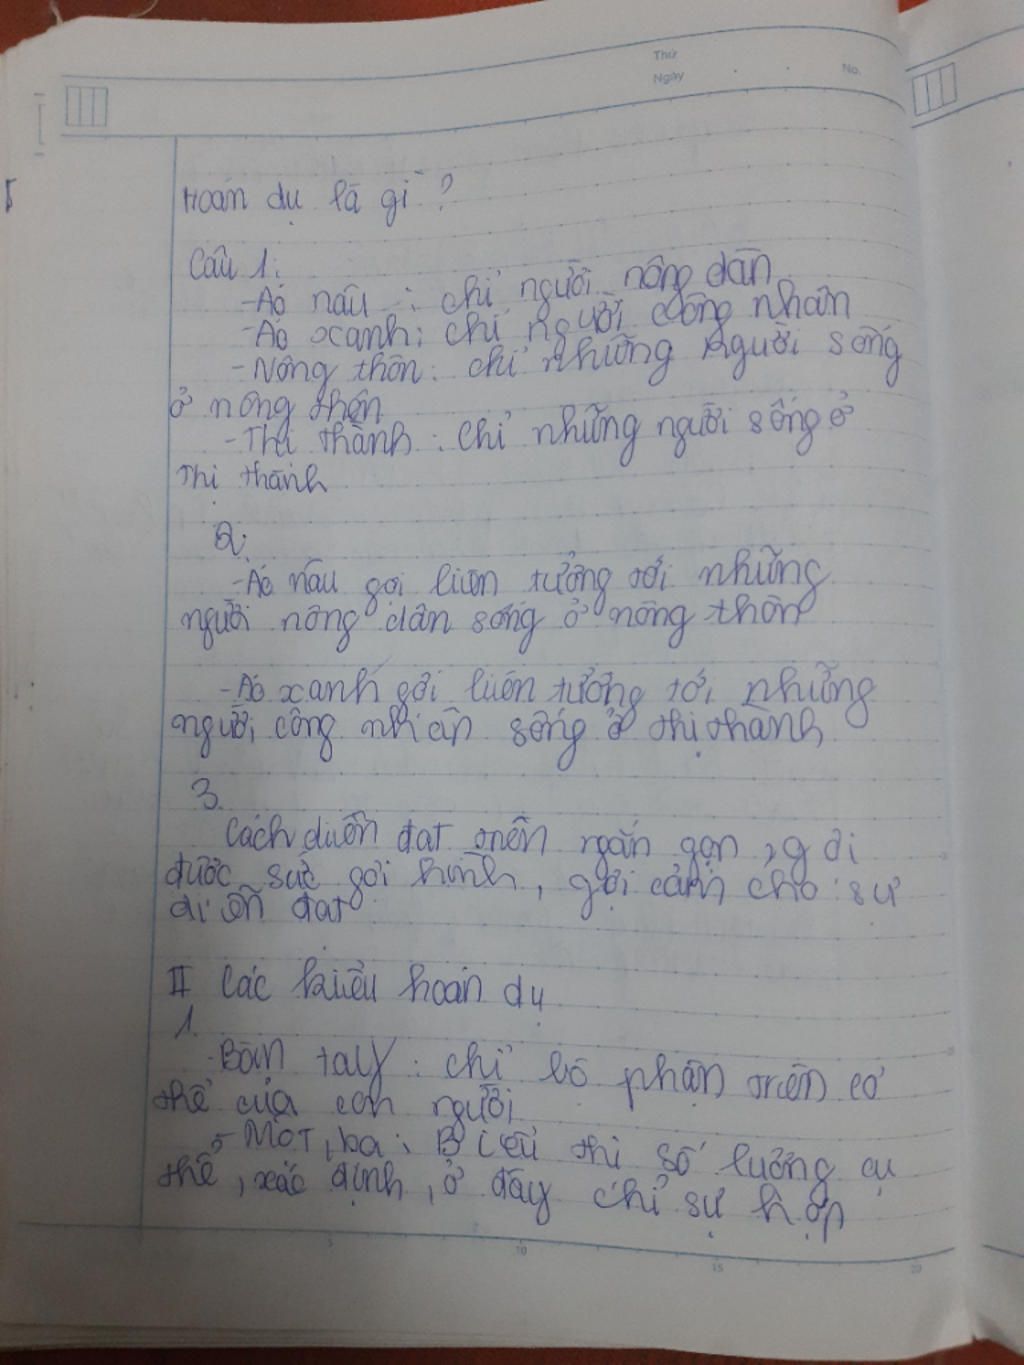 Thứ
Ngày
No.
I
Hoán dụ là gì ?
Câu 1:
-Áo nâu : chỉ người nông dân
-Áo xanh: chỉ người công nhân
-Nông thôn: chỉ những người sống
ở nông thôn
-Thị thành : chỉ những người sống ở
Thị thành
2.
-Áo nâu gợi liên tưởng tới những
người nông dân sống ở nông thôn
-Áo xanh gợi liên tưởng tới những
người công nhân sống ở thị thành
3.
Cách diễn đạt trên ngắn gọn, gợi
được sức gợi hình, gợi cảm cho sự
diễn đạt
II Các kiểu hoán dụ
1.
-Bàn tay : chỉ bộ phận trên cơ
thể của con người
- Một, ba : Biểu thị số lượng cụ
thể, xác định, ở đây chỉ sự hợp
5
10
15
20